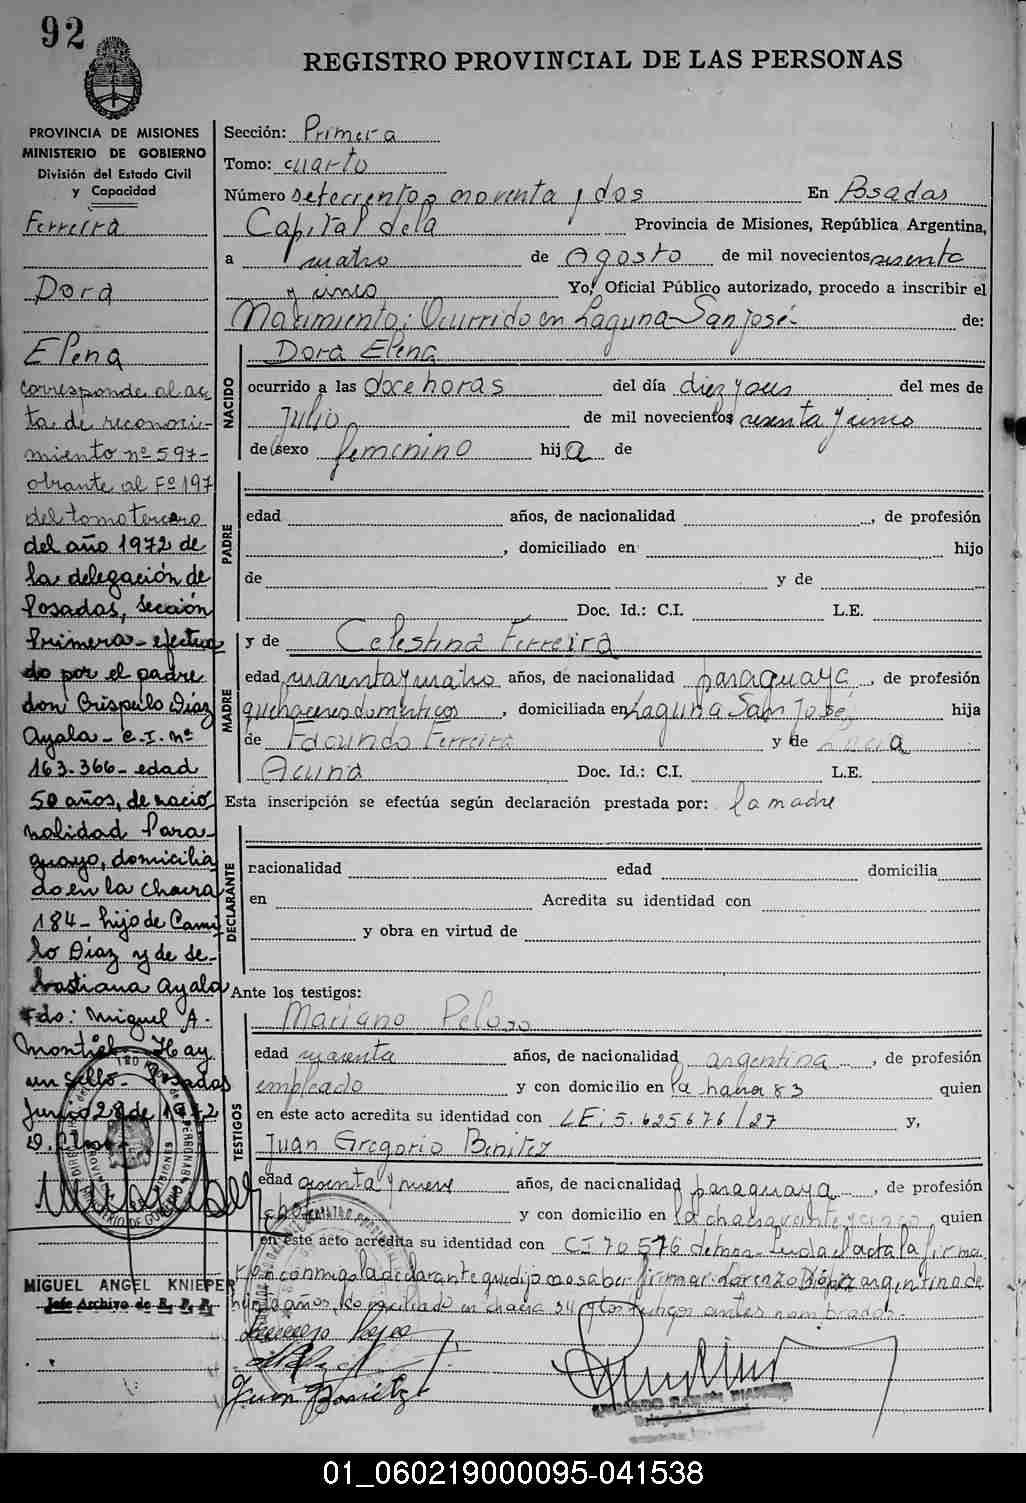 92
REGISTRO PROVINCIAL DE LAS PERSONAS
PROVINCIA DE MISIONES
MINISTERIO DE GOBIERNO
División del Estado Civil
y Capacidad
Ferreira
Dora
Elena
corresponde al ac
ta de reconoci-
miento nº 597-
obrante al Fº 197
del tomo tercero
del año 1972 de
la delegación de
Posadas, sección
Primera - efectua
do por el padre
don Crispulo Diaz
Ayala - C.I. nº
163.366 - edad
50 años, de nacio
nalidad Para-
guayo, domicilia
do en la chacra
184 - hijo de Cami
lo Díaz y de Se-
bastiana Ayala
Fdo: Miguel A.
Montiel. Hay
un sello. Posadas
Junio 28 de 1972
MIGUEL ANGEL KNIEPER
Jefe Archivo de R. P. P.
Sección: Primera
Tomo: cuarto
Número setecientos noventa y dos En Posadas
Capital de la Provincia de Misiones, República Argentina,
a cuatro de Agosto de mil novecientos sesenta
y cinco Yo, Oficial Público autorizado, procedo a inscribir el
Nacimiento: Ocurrido en Laguna San José de:
Dora Elena
NACIDO
ocurrido a las doce horas del día diez y seis del mes de
Julio de mil novecientos sesenta y cinco
de sexo femenino hija de
PADRE
edad años, de nacionalidad , de profesión
, domiciliado en hijo
de y de
Doc. Id.: C.I. L.E.
y de Celestina Ferreira
MADRE
edad cuarenta y cuatro años, de nacionalidad paraguaya , de profesión
quehaceres domésticos , domiciliada en Laguna San José hija
de Facundo Ferreira y de Lucia
Acuña Doc. Id.: C.I. L.E.
Esta inscripción se efectúa según declaración prestada por: la madre
DECLARANTE
nacionalidad edad domicilia
en Acredita su identidad con
y obra en virtud de
Ante los testigos:
Mariano Peloso
TESTIGOS
edad cuarenta años, de nacionalidad argentina , de profesión
empleado y con domicilio en la chacra 83 quien
en este acto acredita su identidad con LE: 5.625676/27 y,
Juan Gregorio Benitez
edad sesenta y nueve años, de nacionalidad paraguaya , de profesión
y con domicilio en la chacra veinte y cinco quien
en este acto acredita su identidad con CI 70576 de Mnes. Leida el acta la firma
con conmigo la declarante que dijo no saber firmar Lorenzo argentino de
años, domiciliado en chacra 34 y los testigos antes nombrados.
Juan Benitez
01_060219000095-041538